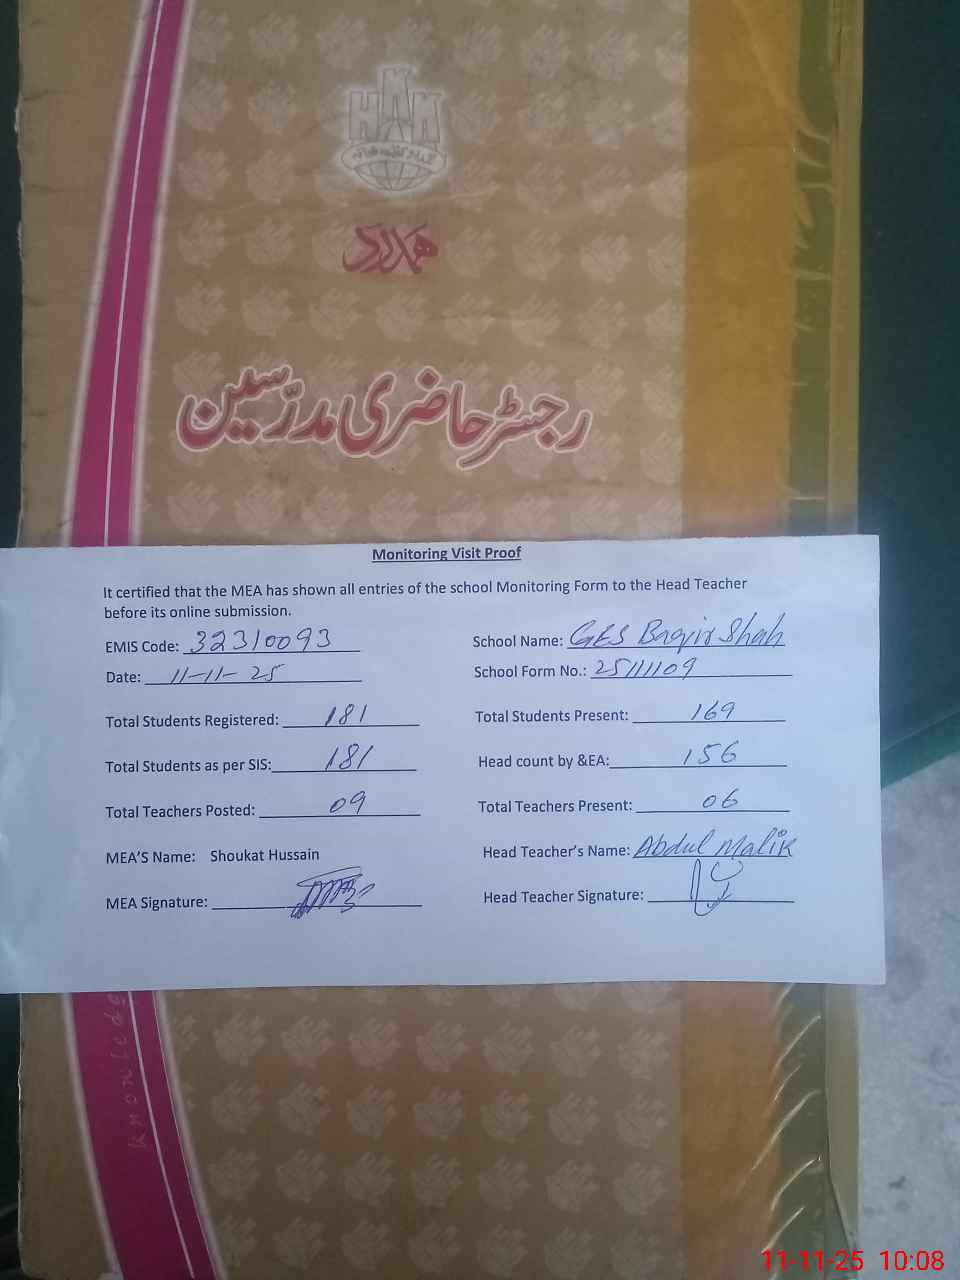 HAK
ہمدرد
رجسٹر حاضری مدرّسین
Monitoring Visit Proof
It certified that the MEA has shown all entries of the school Monitoring Form to the Head Teacher
before its online submission.
EMIS Code: 32310093 School Name: GES Baqir Shah
Date: 11-11-25 School Form No.: 25111109
Total Students Registered: 181 Total Students Present: 169
Total Students as per SIS: 181 Head count by &EA: 156
Total Teachers Posted: 09 Total Teachers Present: 06
MEA'S Name: Shoukat Hussain Head Teacher's Name: Abdul Malik
MEA Signature: Head Teacher Signature:
11-11-25 10:08